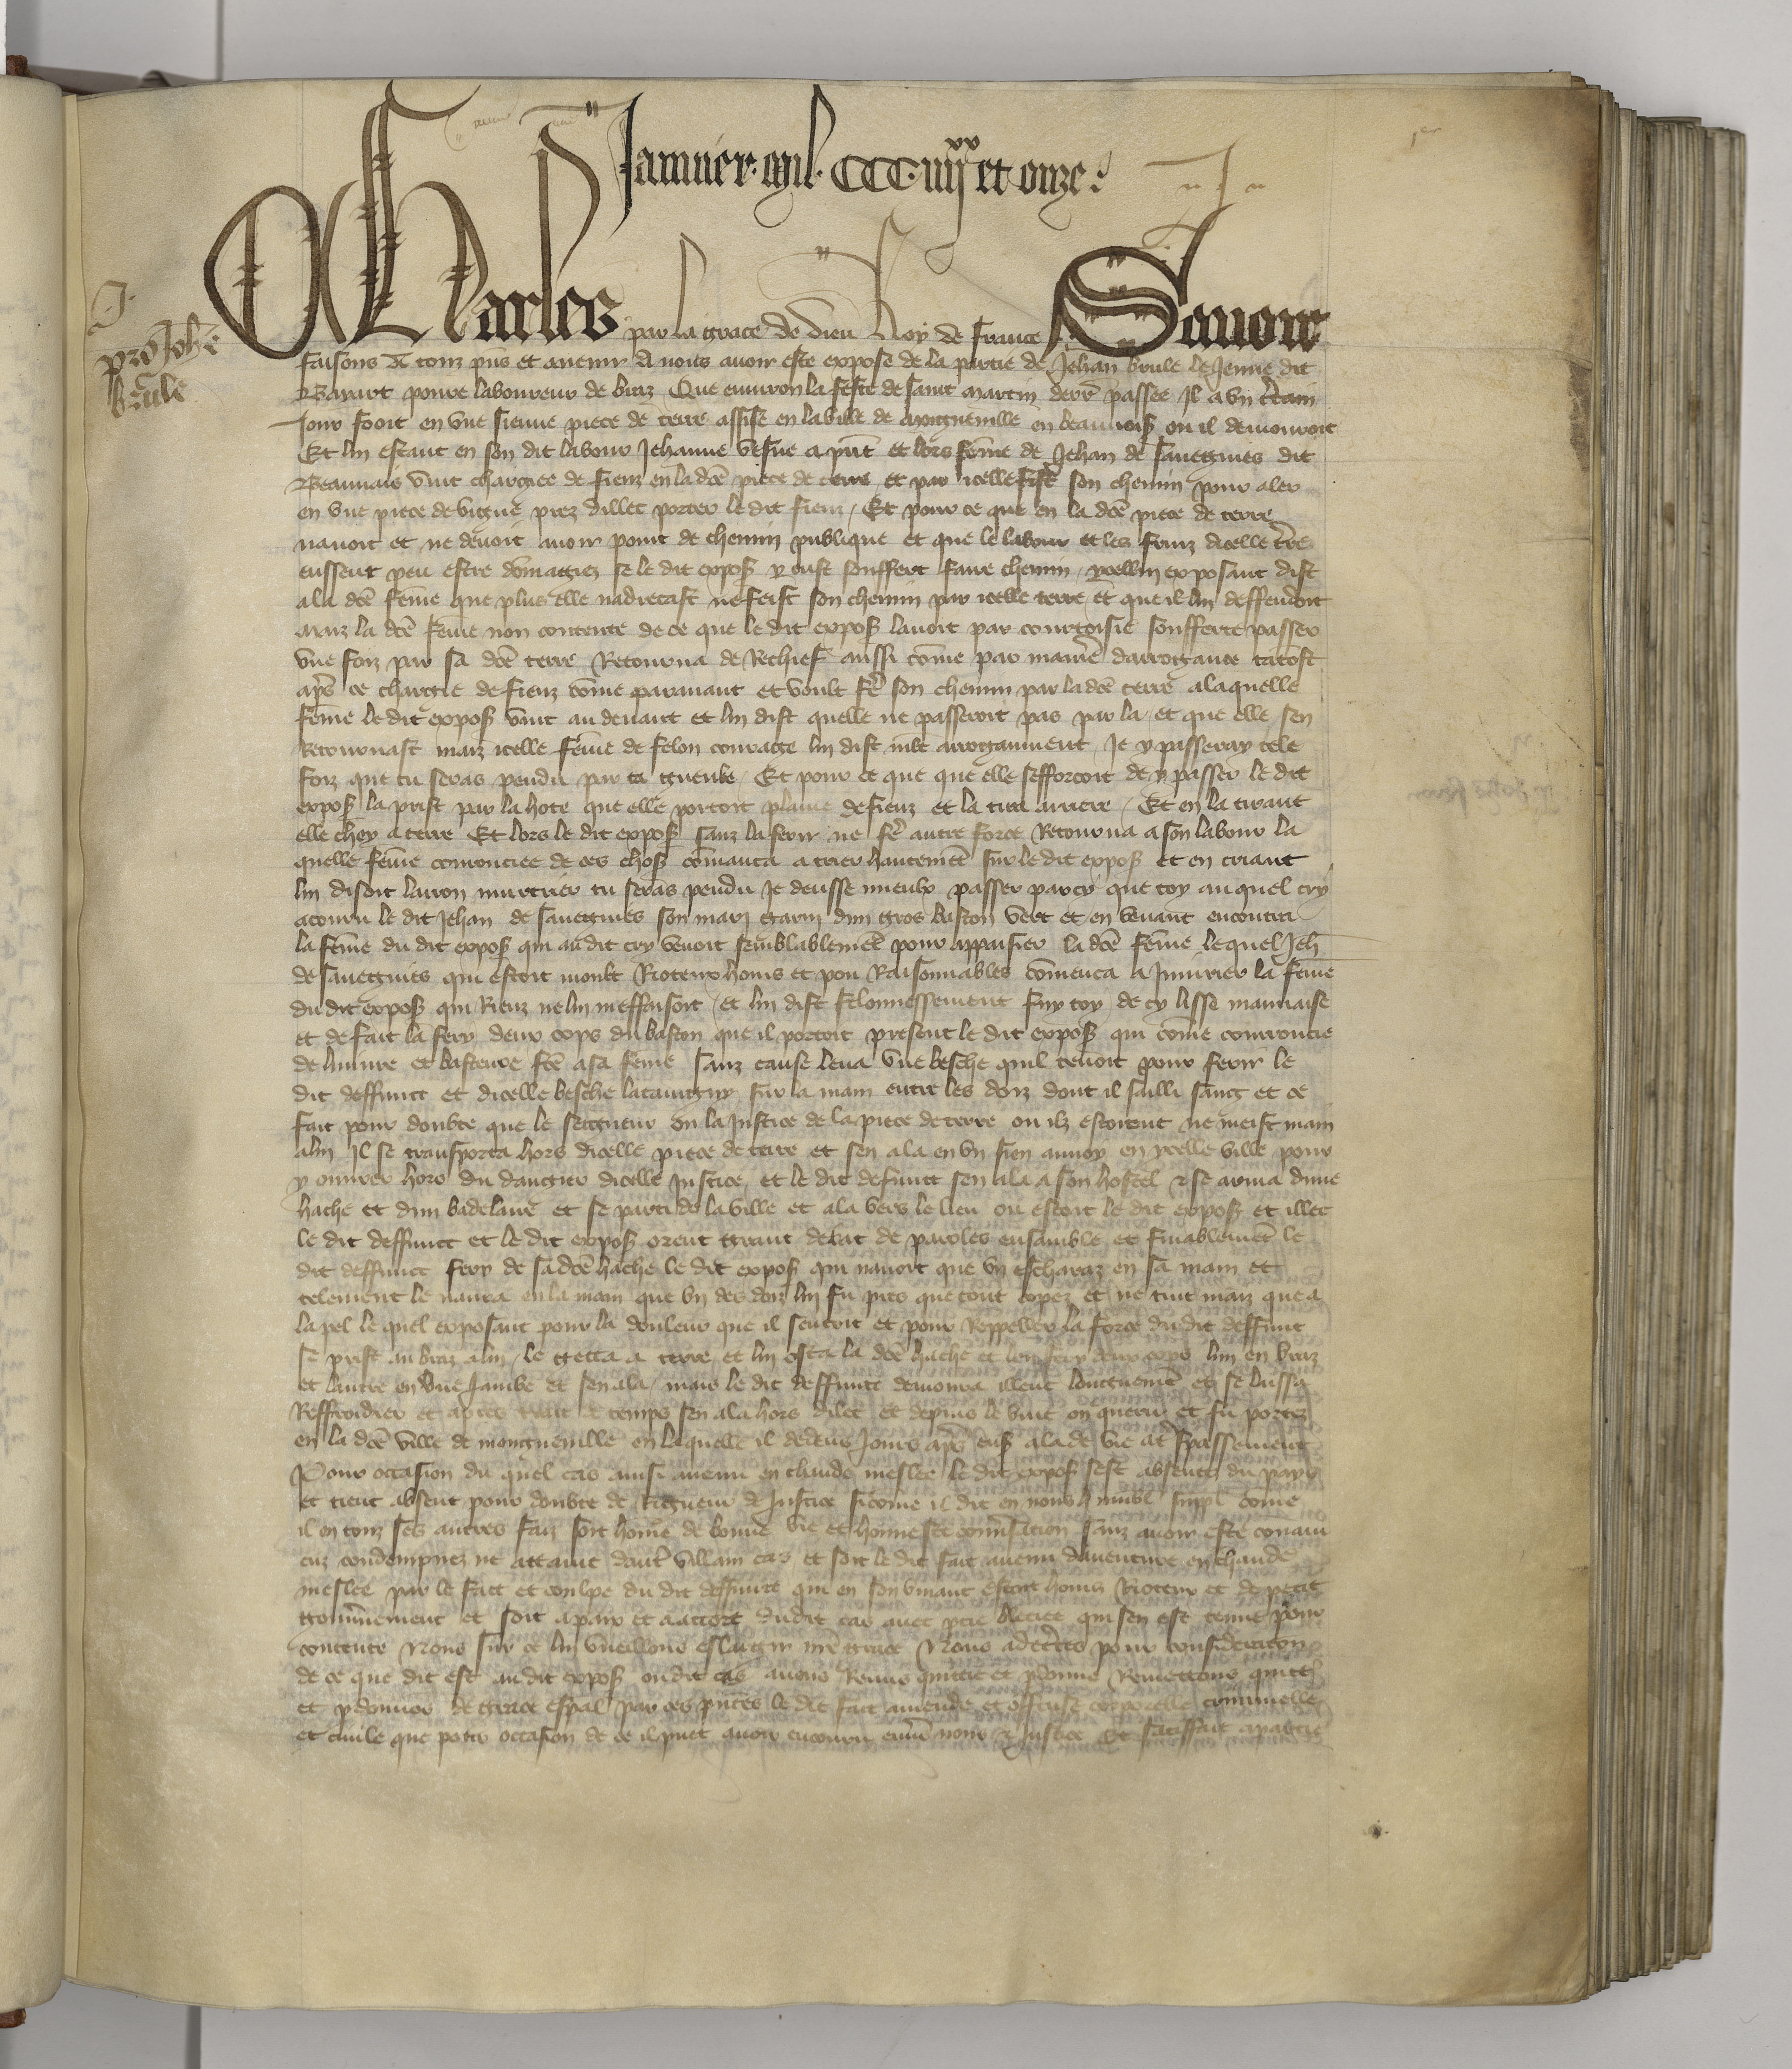 Januier mil CCC iiijxx et onze
I
pro Johē
brule
Charles par la grace de dieu Roy de france Sauoir
faisons A touz pns et auenir A nous auoir este expose de la partie de Jehan brule le Jeune dit
poure laboureur de braz Que enuiron la feste de saint martin derr passee Il a vn ctain
Jour fooit en vne sienne piece de terre assise en la ville de monguenille en beauuoisz ou il demouroit
Et lui estant en son dit labour Jehanne vesue a pnt et lors feme de Jehan de sauegnies dit
Beauuais vint chargiee de fienz en la dce piece de terre et par icelle fist son chemin pour aler
en vne piece de vigne prez dillec porter le dit fienz / Et pour ce que en la dce piece de terre
nauoit et ne deuoit auoir point de chemin publique et que le labour et les fruiz dicelle tre
eussent peu estre dommagiez se le dit expos y eust souffert faire chemin / ycellui exposant dist
a la dce feme que plus elle nadrecast ne feist son chemin par icelle terre et que il lui deffendoit
maiz la dce feme non contente de ce que le dit expos lauoit par courtoisie soufferte passer
vne foiz par sa dce terre Retourna de Rechief aussi cōme par manie darrogance tātost
apz ce chargie de fienz cōme parauant et voult fe son chemin par la dce terre a laquelle
feme le dit expos vint au deuant et lui dist quelle ne passeroit pas par la / et que elle sen
Retournast maiz icelle feme de felon courage lui dist mlt arrogamment / Je y passeray tele
foiz que tu seras pendu par ta gueule / Et pour ce que que elle sefforcoit de y passer le dit
expos la prist par la hote que elle portoit plaine de fienz et la tira arriere / Et en la tirant
elle chey a terre Et lors le dit expos sanz la ferir ne fe autre force Retourna a son labour la
quelle feme courouciee de ces chos cōmanca a crier hautemēt sur le dit expos et en criant
lui disoit larron murtrier tu seras pendu Je deusse mieulx passer par cy que toy au quel cry
acouru le dit Jehan de sauegnies son mari garni dun gros baston vert et en venant encontra
la feme du dit expos qui au dit cry venoit semblablemēt pour appaisier la dce feme lequel Jeh
de sauegnies qui estoit moult Rioteux homs et pou Raisonnables cōmenca a Iniurier la feme
du dit expos qui Riens ne lui meffaisoit / et lui dist felonnessement fuy toy de cy lisse mauuaise
et de fait la fery deux cops du baston que il portoit present le dit expos qui cōme courroucie
de liniure et basteure fce a sa feme sanz cause leua vne besche quil tenoit pour ferir le
dit deffunct et dicelle besche lataingny sur la main entre les doiz dont il sailli sang et ce
fait pour doubte que le seigneur ou la Justice de la piece de terre ou ilz estoient ne meist main
a lui Il se transporta hors dicelle piece de terre et sen ala en vn sien aunoy en ycelle ville pour
y ouurer hors du dangier dicelle Justice et le dit defunct sen ala a son hostel & se arma dune
hache et dun badelaire et se parti de la ville et ala vers le lieu ou estoit le dit expos et illec
le dit deffunct et le dit expos orent grant debat de paroles ensamble et finablemēt le
dit deffunct fery de sa dce hache le dit expos qui nauoit que vn escharaz en sa main et
telement le naura en la main que vn des doiz lui fu pres que tout copez et ne tint maiz que a
la pel le quel exposant pour la douleur que il sentoit et pour Reppeller la force du dit deffunt
se prist au braz a lui / le getta a terre et lui osta la dce hache et len fery deux cops lun en braz
et lautre en vne Jambe et sen ala / mais le dit deffunct demoura illeuc longuemēt et se laissa
Reffroidier et apres tant de temps sen ala hors dilec et depuis le vint on querir et fu portez
en la dce ville de monguenille en laquelle il dedeux Jours apz ens ala de vie a trespassement
Pour occasion du quel cas ainsi auenu en chaude meslee le dit expos sest absente du pays
et tient absent pour doubte de rigueur de Justice sicōme il dit en nous humbl suppl cōme
il en touz ses autres faiz soit home de bonne vie et honneste conuersation sanz auoir este conuain
cuz condempnez ne attaint daut villain cas et soit le dit fait auenu dauenture en chaude
meslee par le fait et coulpe du dit deffunct qui en son viuant estoit homs Rioteux et de petit
gouuernement et soit a paix et a acort dudit cas auec ptie bleciee qui sen est tenue pour
contente Nous sur ce lui vueillons eslargir nre grace Nous adecertes pour consideracion
de ce que dit est au dit expos ou dit cas auons Remis quittie et pdonne Remettons quitt
et pdonnos de grace espal par ces pntes le dit fait amende et offense corporelle criminelle
et ciuile que pour occasion de ce il puet auoir encouru enus nous & Justice Et satiffait a partie